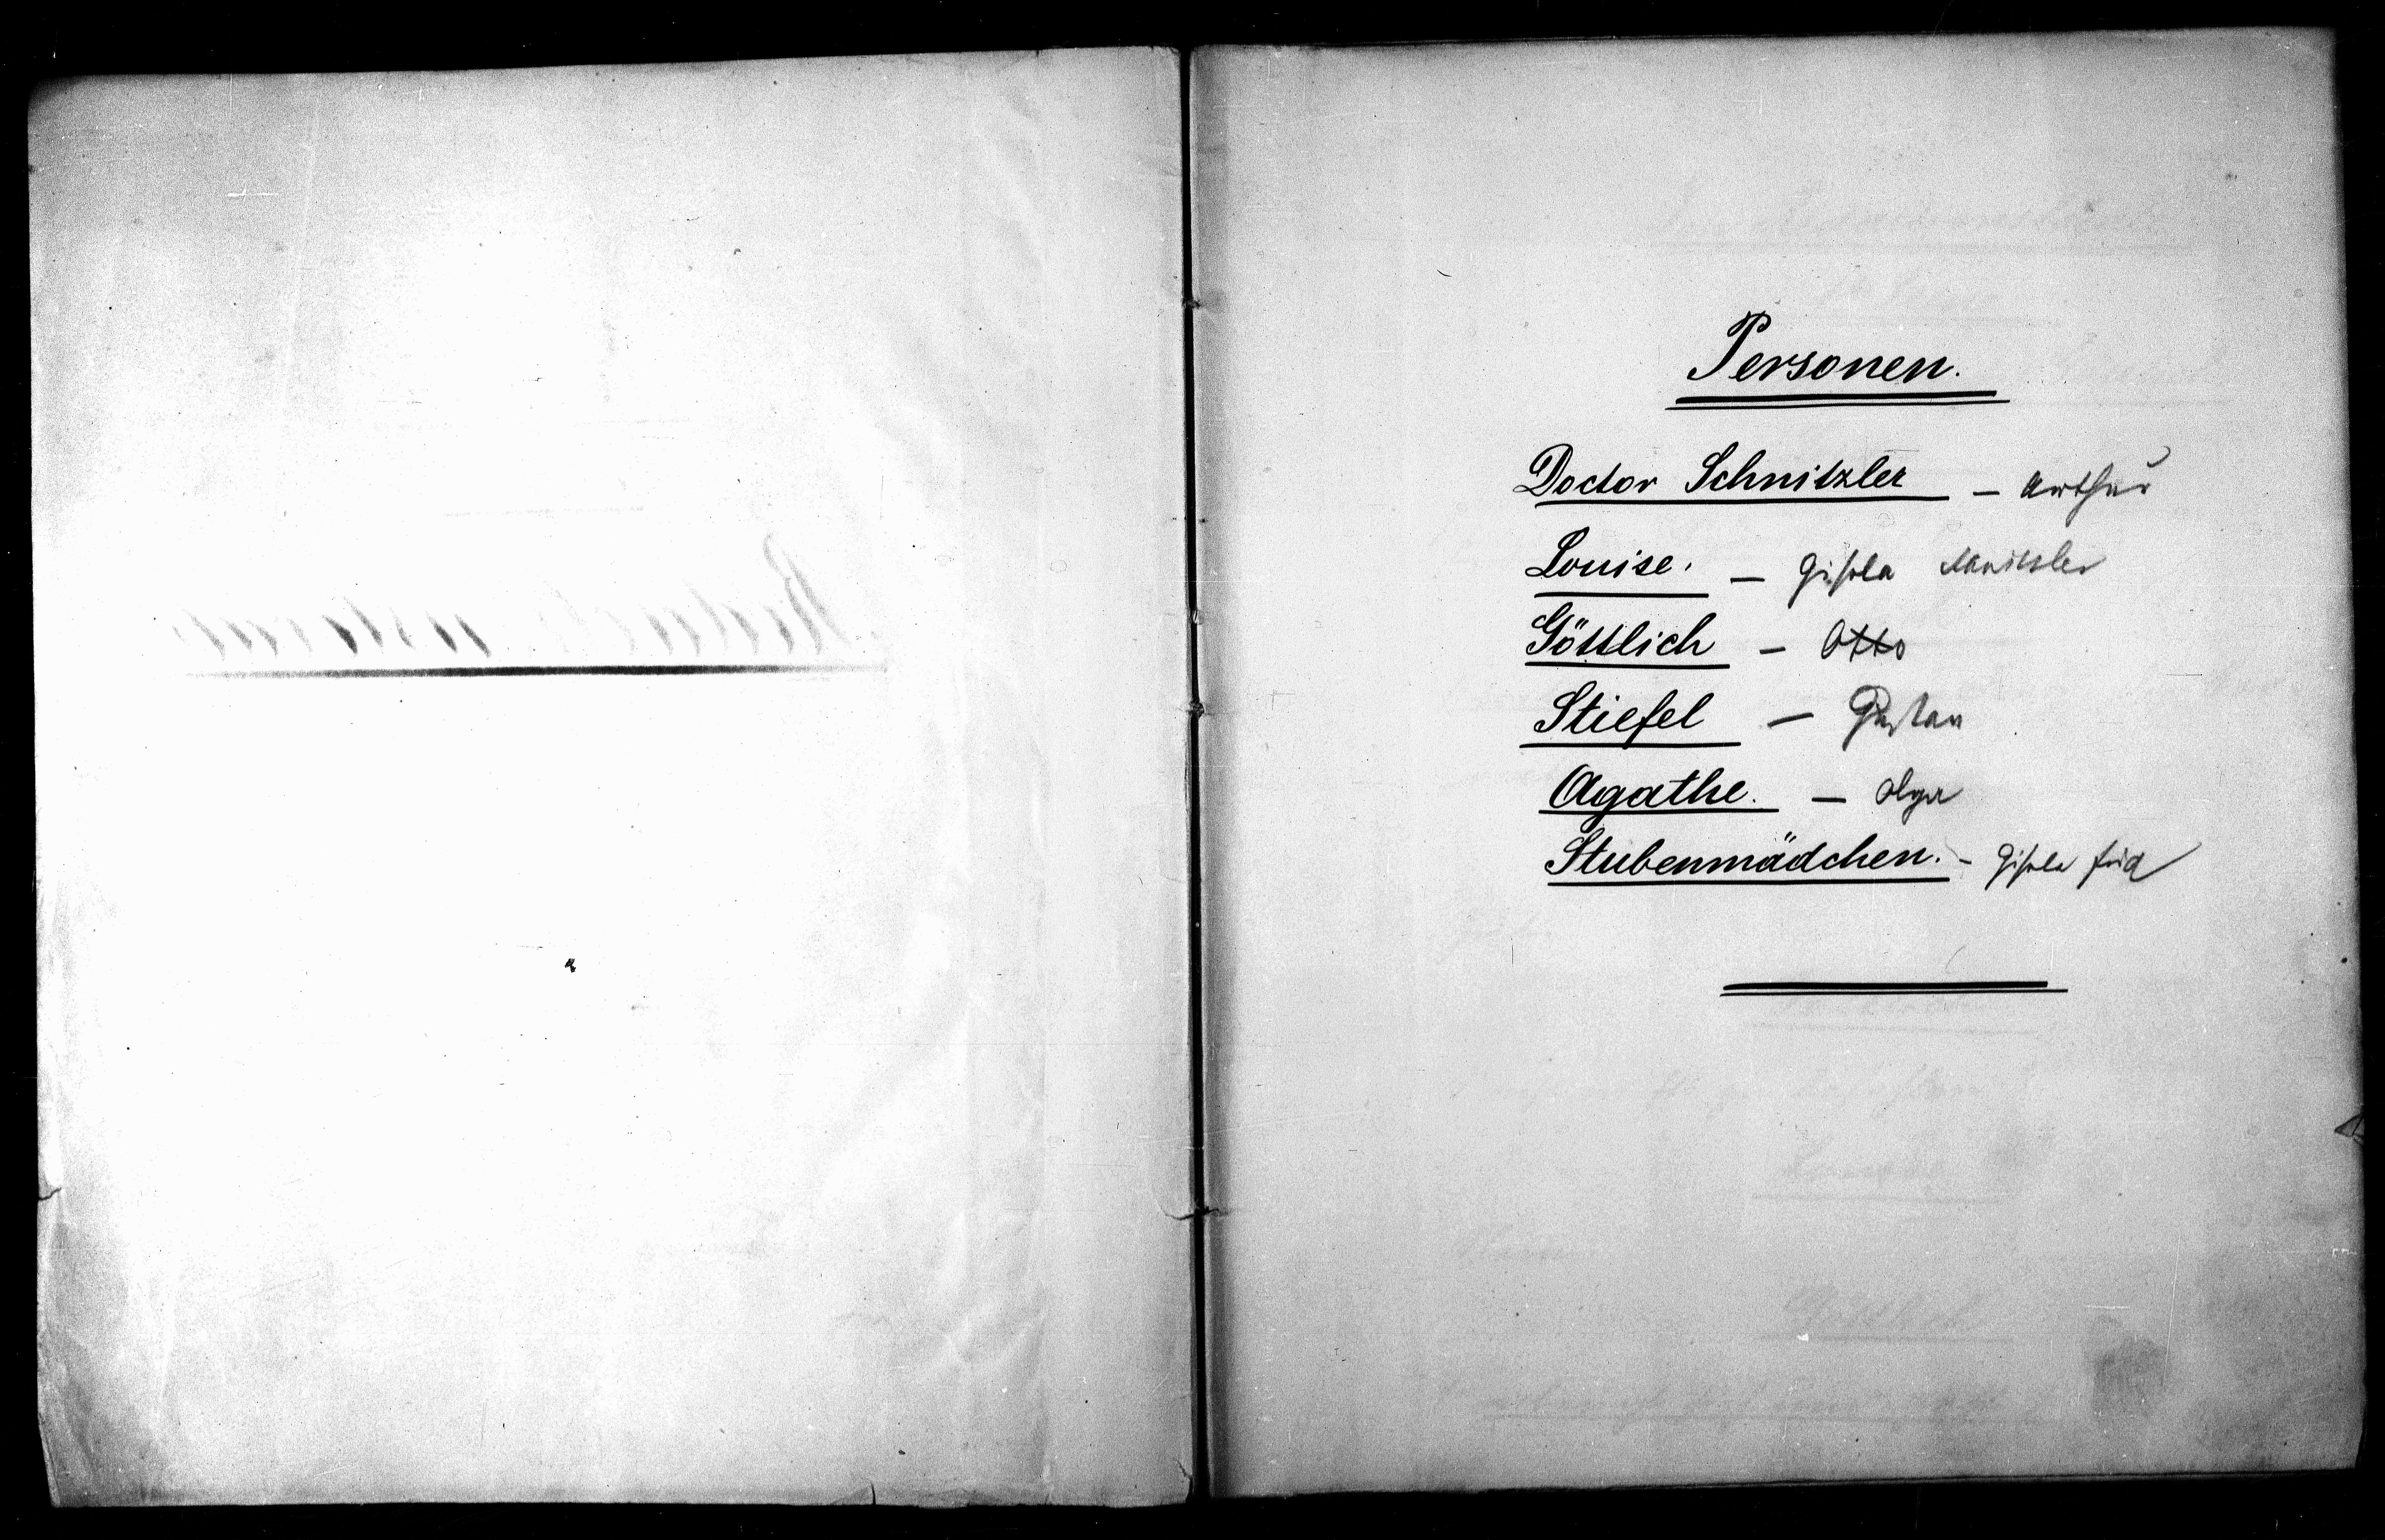 Personen.
Doctor Schnitzler — Arthur
Louise. — Gisela Schnitzler
Göttlich — Otto
Stiefel — Gustav
Agathe. — Olga
Stubenmädchen. – Gisela